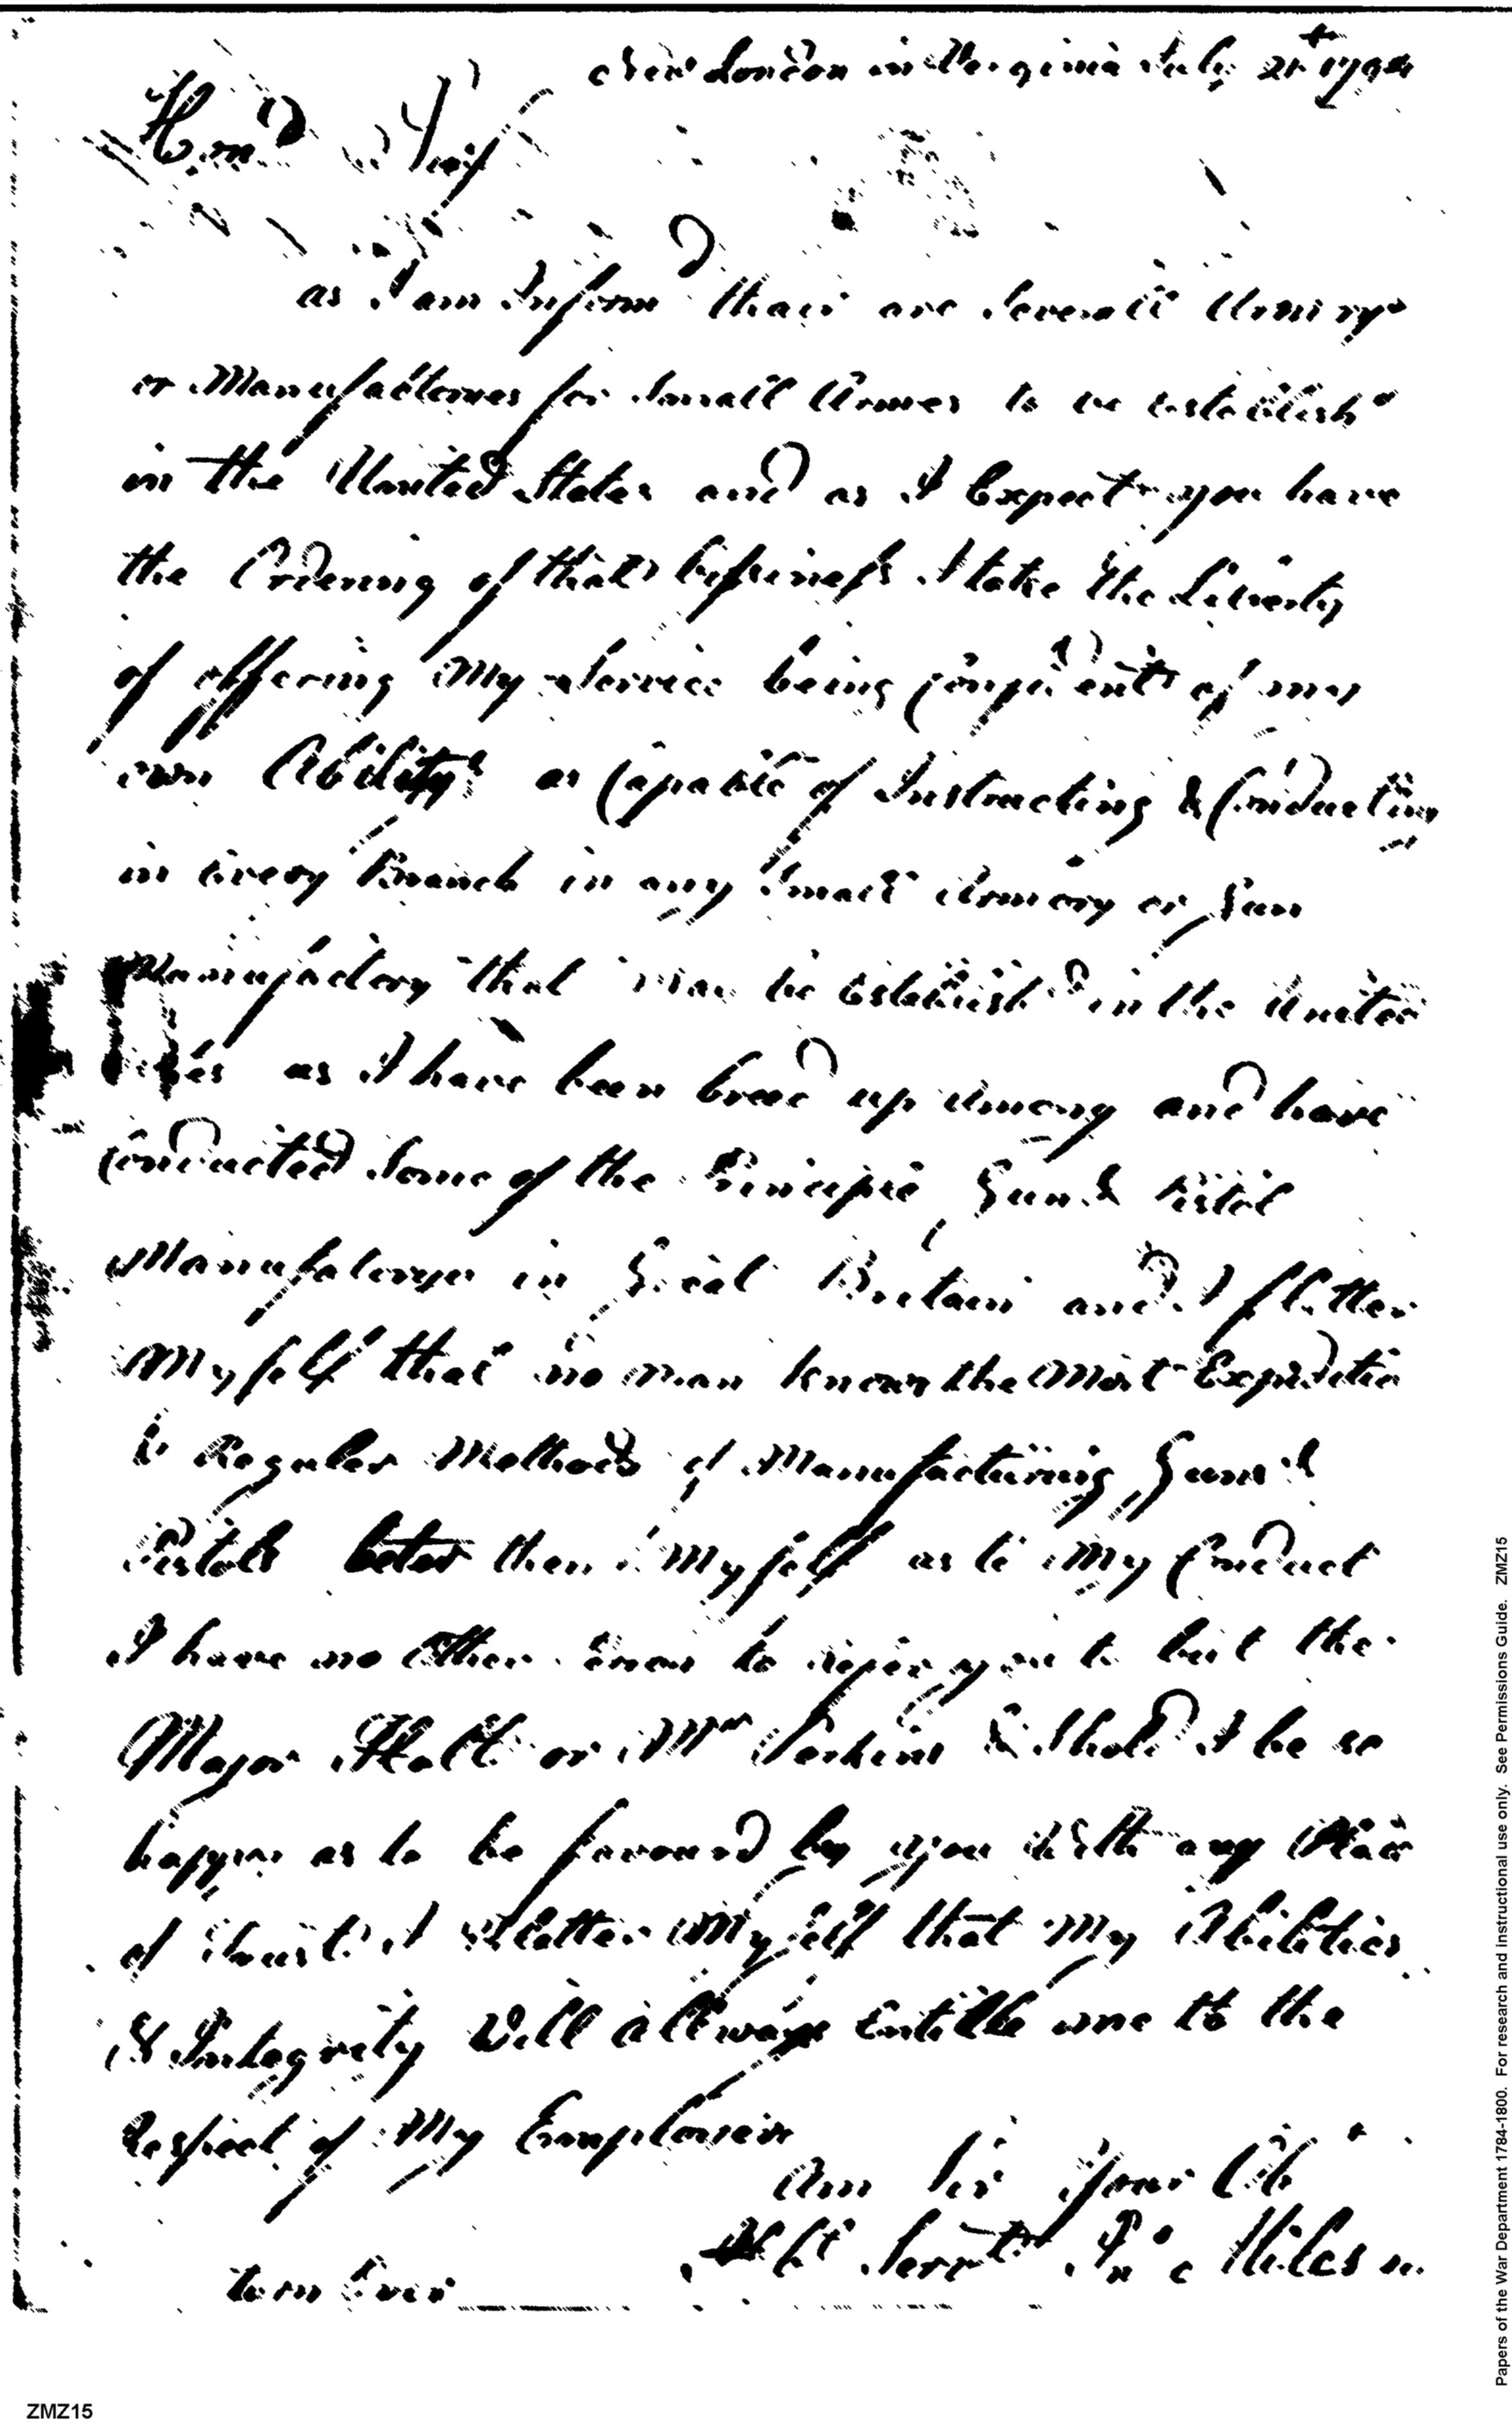 New London in Verginia July 21st 1794
Hond Sir
as I am Informd thair are Severall Armirys
or Manufactorves for Small Armes to be Establishd
in the United States and as I Expect you have
the Ordering of that bussiness I take the Liberty
of offering My Service being Confident of my
own Abilitys as Capable of Instructing & Conducting
in Every Branch in any Small Armory or Gun
Manufactory that may be Establishd in the United
as I have been breed up Among and have
Conducted Some of the Principle Gun & Pistol
Manufatorys in Great Britain and I flatter
My self that no man knows the Most Expeditio
& Regular Methods of Manufacturing Guns &
Pistols beter then My self as to My Conduct
I have no Other to refer you to but the
Major Holt or Mr Perkins & Shold I be so
happy as to be favourd by you With any Place
of Trust I Flatter My self that My Abilities
& Integrity Will allways Entitle me to the
Respect of My Employer
Am Sir Your Ob
Hbl Servt Jno Miles
torn Over
ZMZ15
Papers of the War Department 1784-1800. For research and instructional use only. See Permissions Guide. ZMZ15